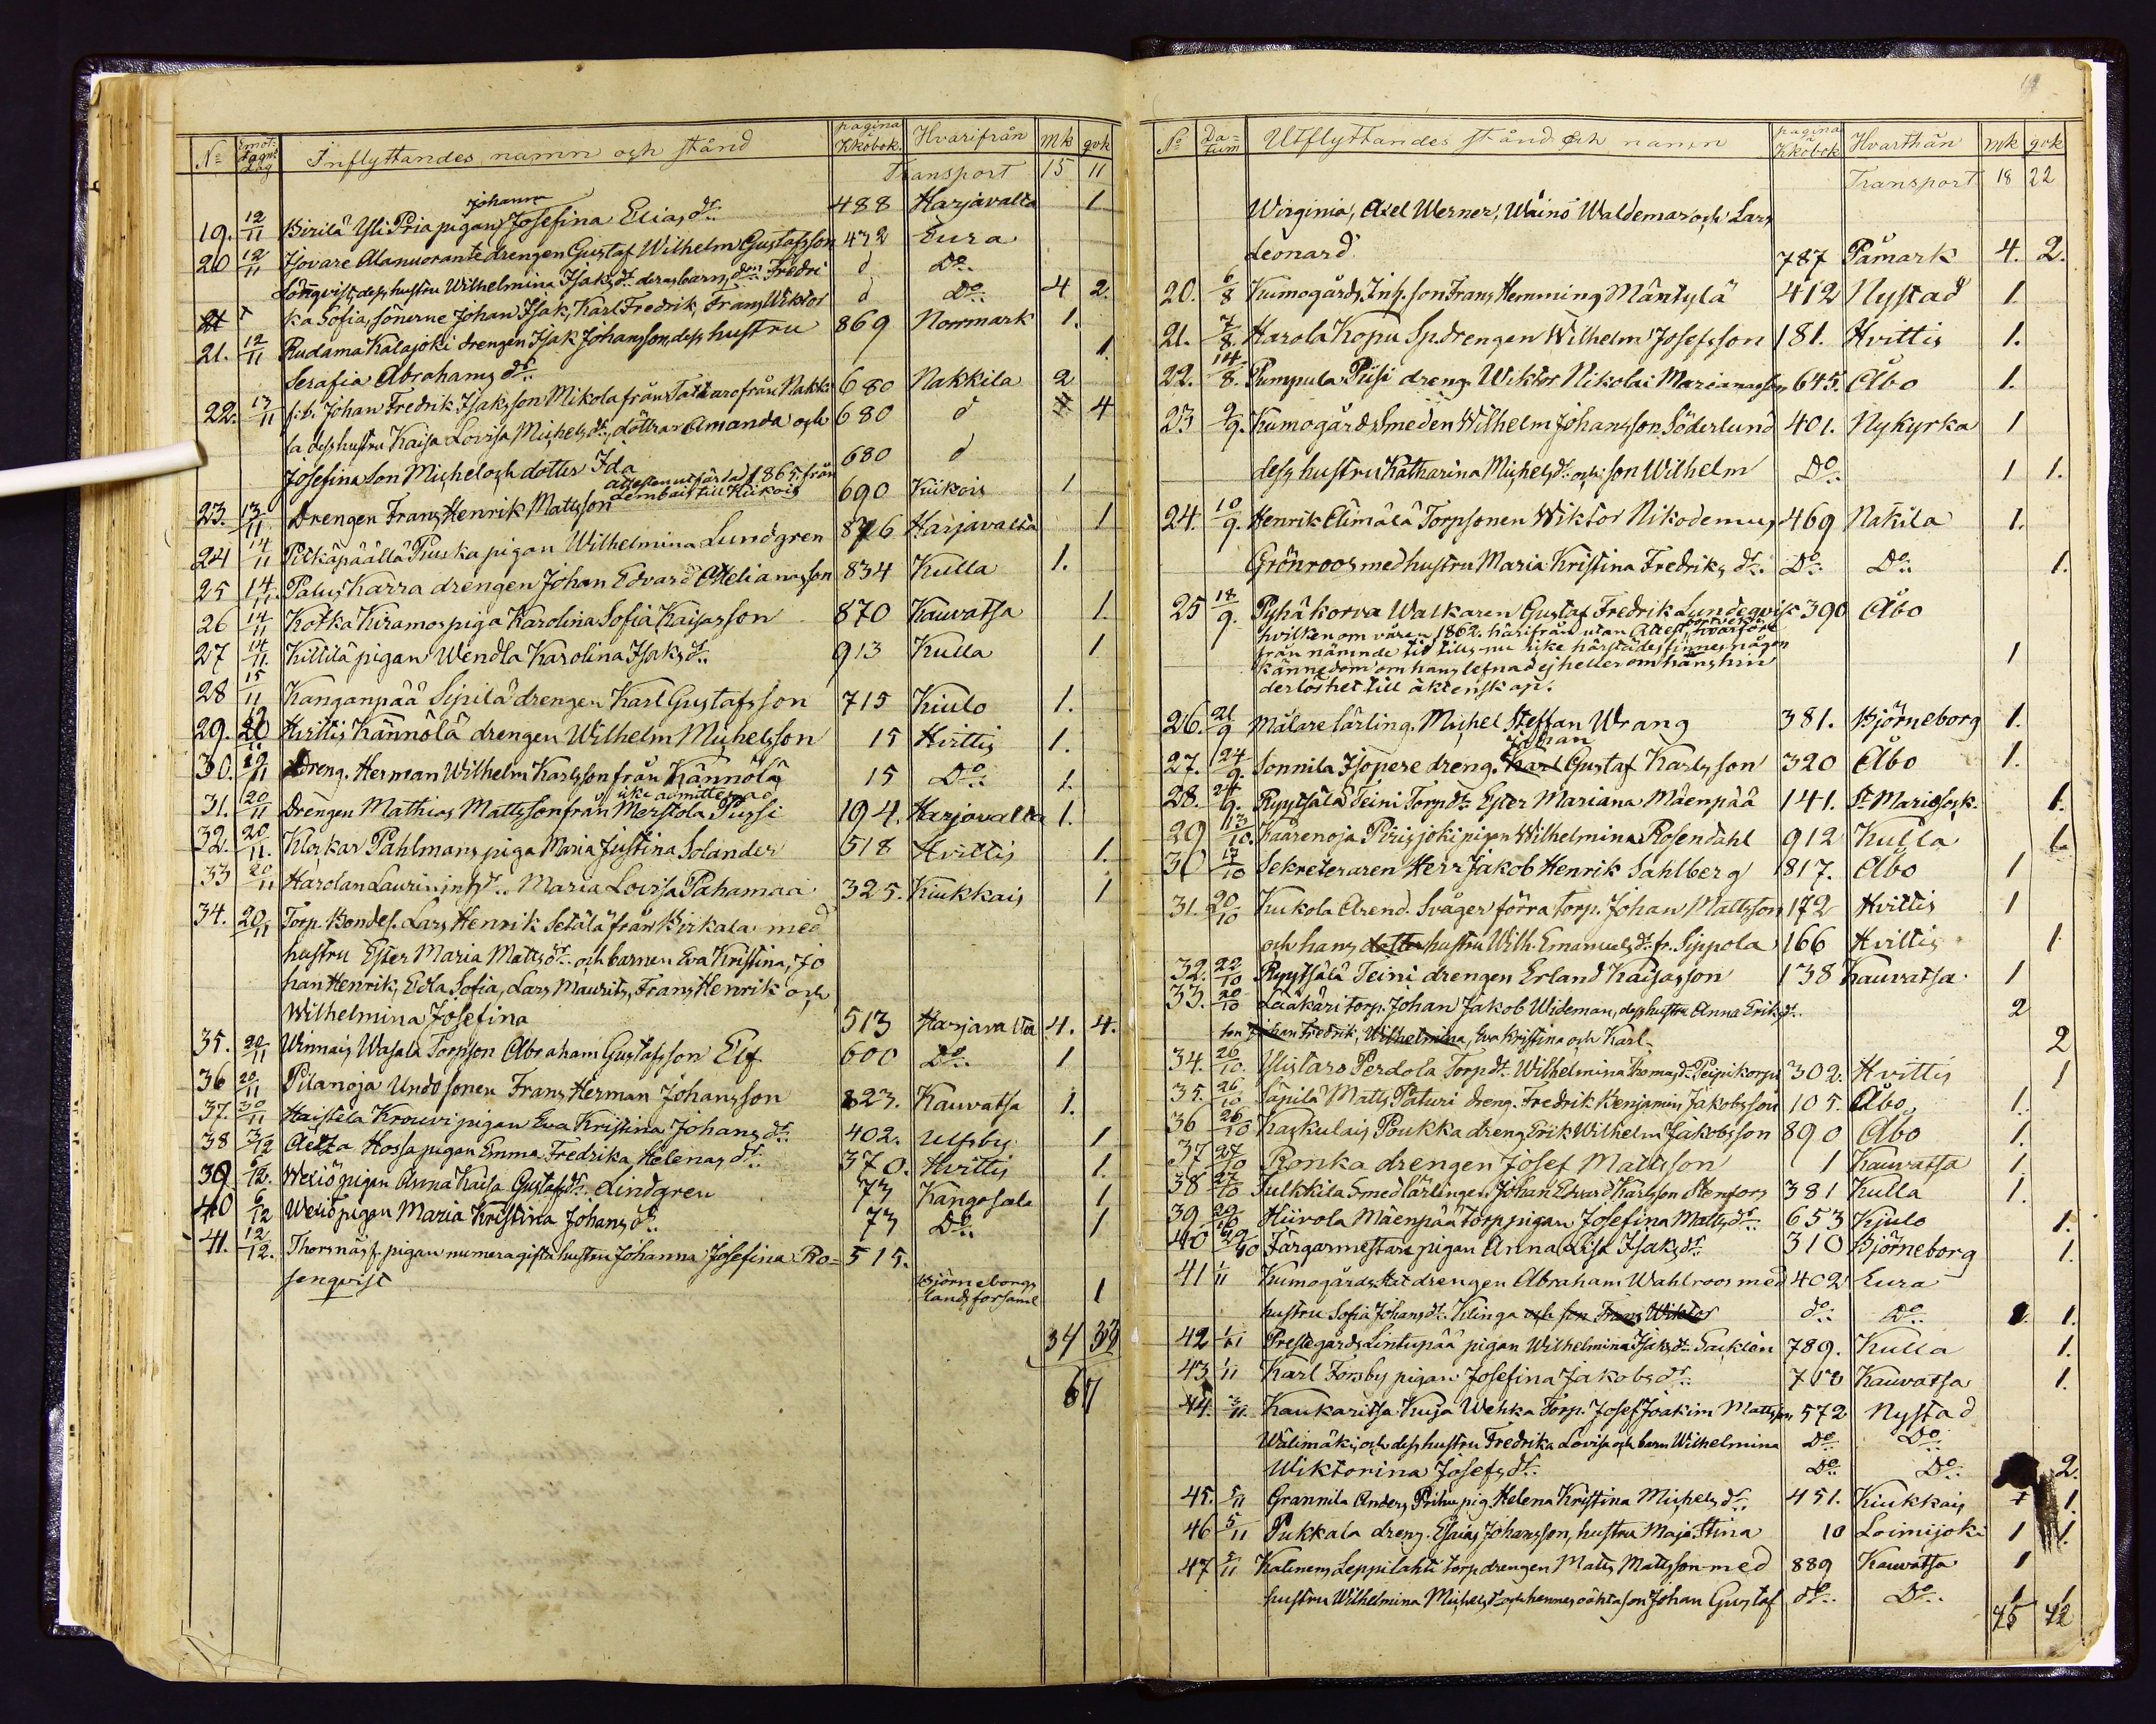 No Emot-tagn: dag Inflyttandes namn och stånd pagina Kkobok. Hvarifrån Mk qvk
Transport 15 11
19. 12/11 Birilä Yli Pria pigan Johanna Josefina Elias dr. 488 Harjavalta 1
20 12/11 Isovare Alanuorante drengen Gustaf Wilhelm Gustafsson 432 Eura
Lönnqvist, dess hustru Wilhelmina Isaks dr. deras barn, Fredri d Do..
ka Sofia, sönerne Johan Isak, Karl Fredrik, Frans Wiktor d Do.. 4 2.
21. 12/11 Rudama Kalajoki drengen Isak Johansson, dess hustru 869 Norrmark 1.
Serafia Abrahams dr. 1.
22. 13/11 f:b. Johan Fredrik Isaksson Mikola från Tattara från Nakki 680 Nakkila 2
la dess hustru Kaisa Lovisa Michels dr., döttrar Amanda och 680 d 4
Josefina Son Michel och dotter Ida 680 d
attesten utfärdad 1865 från
23. 13/11 Drengen Frans Henrik Mattsson Lembois till Kiikois 690 Kiikois 1
24 14/11 Pitkäpäällä Puska pigan Wilhelmina Lundgren 876 Harjavalta 1
25 14/11 Palus Karra drengen Johan Edvard Helianasson 834 Kulla 1.
26 14/11 Kotka Kiramos piga Karolina Sofia Kaisasson 870 Kauvatsa 1.
27 14/11. Kittilä pigan Wendla Karolina Isaks dr. 913 Kulla 1
28 15/11 Kanganpää Sipilä drengen Karl Gustafsson 715 Kiulo 1.
29. 20/11 Hvittis Kännölä drengen Wilhelm Michelsson 15 Hvittis 1.
30. 19/11 Dreng. Herman Wilhelm Karlsson från Kännölä 15 Do.. 1.
icke admitterad
31. 20/11 Drengen Mathias Mattsson från Merstola Pussi 194. Harjavalta 1.
32. 20/11. Klockar Pahlmans piga Maria Justina Solander 518 Hvittis 1.
33 20/11 Harolan Laurin inh. dr. Maria Lovisa Pahamaa 325. Kiukkais 1
34. 20/11 Torp. Bondes. Lars Henrik Setälä från Birkala med
hustru Ester Maria Matts dr. och barnen Eva Kristina, Jo
han Henrik, Edla Sofia, Lars Maurits, Frans Henrik och
Wilhelmina Josefina 513 Harjavalta 4. 4.
35. 20/11 Winnais Wasala Torpson Abraham Gustafsson Elf 600 Do.. 1
36 20/11 Pilanoja Undo sonen Frans Herman Johansson 823. Kauvatsa 1.
37. 30/11 Haistela Krouvi pigan Eva Kristina Johans dr. 402. Ulfsby 1
38 3/12 Aetsa Hossa pigan Emma Fredrika Helenas dr. 370. Hvittis 1.
39 /12. Wexiö pigan Anna Kaisa Gustafs dr. Lindgren 73 Kangasala 1
40 6/12 Wexiö pigan Maria Kristina Johans dr. 73 Do.. 1
41. 12/12. Thorsnäs f. pigan numera gifta hustru Johanna Josefina Ro= 515.
senqvist Björneborgs landsförsaml 1
34 33
67
No Da=tum Utflyttandes stånd och namn pagina Kkobok Hvarthän mk qvk
Transport 18 22
Wirginia, Axel Werner, Wäinö Waldemar och Lars
Leonard 787 Påmark 4. 2.
20. 6/8 Kumogårds Inh. son Frans Hemming Mäntylä 412 Nystad 1
21. 7/8. Harola Kopu Sp.drengen Wilhelm Josefsson 181. Hvittis 1.
22. 14/8. Pumpula Piisi dreng. Wiktor Nikolai Marianasson 645. Åbo 1.
23 9/9. Kumogårds Smeden Wilhelm Johansson Söderlund 401. Nykyrka 1
dess hustru Katharina Michels dr. och son Wilhelm Do.. 1 1.
24. 10/9. Henrik Elimälä Torpsonen Wiktor Nikodemus 469 Nakila 1.
Grönroos med hustru Maria Kristina Fredriks dr. Do.. Do.. 1.
25 18/9. Pyhäkorva Walkaren Gustaf Fredrik Lundeqvist 390 Åbo
hvilken om våren 1862. härifrån utan Attest bortvek, hvarföre
från nämnde tid tills nu icke härstädes finnes någon
kännedom om hans lefnad ej heller om hans hin 1
derlöshet till äktenskap.
26. 21/9 Målare lärling. Michel Steffan Wrang 381. Björneborg 1.
27. 24/9. Sonnila Isopere dreng. Karl Johan Gustaf Karlsson 320 Åbo 1.
28. 24/9. Ryytsälä Teini Torp dr. Ester Mariana Mäenpää 141. St Marie sok. 1.
29 13/10. Kaarenoja Pirisjoki pigan Wilhelmina Rosendahl 912 Kulla 1.
30 17/10 Sekreteraren Herr Jakob Henrik Sahlberg 817. Åbo 1
31. 20/10 Kukola Arend. Svåger förra torp. Johan Mattsson 172 Hvittis 1
och hans dotter hustru Wilh. Emanuels dr. fr. Sippola 166 Hvittis 1
32. 22/10 Ryytsälä Teini drengen Erland Kaisasson 138 Kauvatsa 1
33. 20/10 Lääkäri torp. Johan Jakob Wideman, dess hustru Anna Eriks dr. 2
son Johan Fredrik, Wilhelmina, Eva Kristina och Karl 2
34. 26/10. Ylistaro Perdola Torp dr. Wilhelmina Thomas dr. Peipikorpu 302. Hvittis 1
35. 26/10 Säpilä Matts Paturi dreng. Fredrik Benjamin Jakobsson 105. Åbo 1.
36 26/10 Kaskulais Poukka dreng Erik Wilhelm Jakobsson 890 Åbo 1.
37 27/10 Ronka drengen Josef Mattsson 1 Kauvatsa 1.
38 27/10 Sulkkila Smedlärlingen Johan Edvard Karlsson Stenfors 381 Kulla 1.
39 29/10 Hiirola Mäenpää torp pigan Josefina Matts dr. 653 Kjulo 1.
40 29/10 Färgarmestare pigan Anna Lisa Isaks dr. 310 Björneborg 1.
41 1/11 Kumogårds Stat drengen Abraham Wahlroos med 402 Eura
hustru Sofia Johans dr. Klinga och son Frans Wiktor do.. Do.. 1. 1.
42 1/11 Prestegårds Lintupää pigan Wilhelmina Isaks dr. Sacklén 789. Kulla 1.
43 1/11 Karl Forsby pigan Josefina Jakobs dr. 758 Kauvatsa 1.
44. 3/11. Kaukaritsa Kuja Wehka Torp. Josef Joakim Mattsson 572 Nystad
Wälimäki, och dess hustru Fredrika Lovisa och barn Wilhelmina Do.. Do..
Wiktorina Josefs dr. Do.. Do.. 2.
45. 5/11 Grannila Anders Prihu pig. Helena Kristina Michels dr. 451. Kiukkais 1.
46 5/11 Pukkala dreng. Esaias Johansson, hustru Maja Stina 10 Loimijoki 1 1.
47 5/11 Katinens Leppilahti torp drengen Matts Mattsson med 889 Kauvatsa 1
hustru Wilhelmina Michels dr. och hennes oäkta son Johan Gustaf do.. Do.. 1 1
45 42